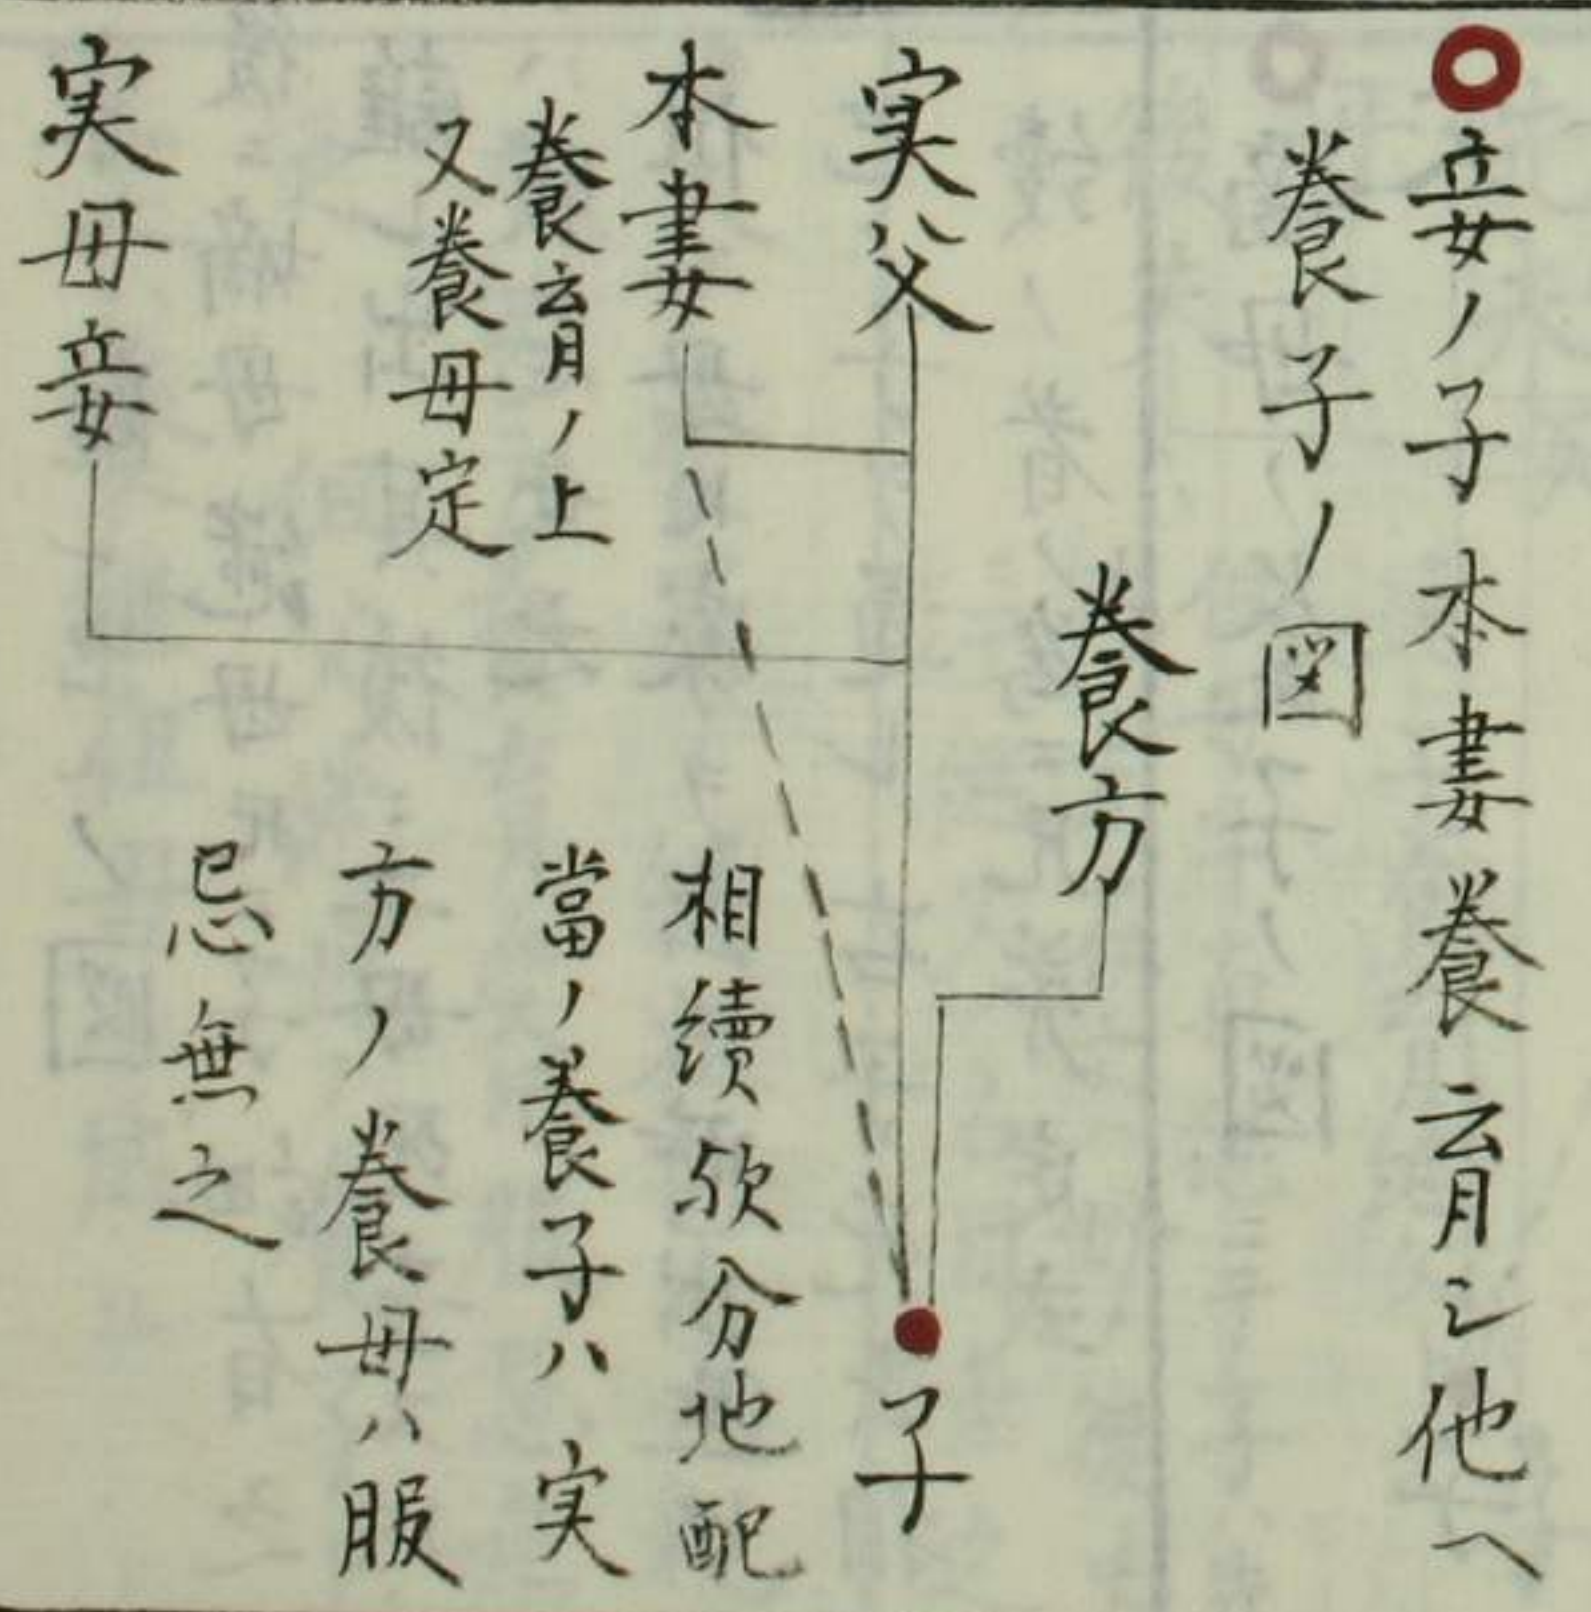 妾ノ子本妻養育シ他ヘ
養子ノ図
養方
実父
本妻
養育ノ上
又養母定
実母妾
子
相續欤分地配
當ノ養子ハ実
方ノ養母ハ服
忌無之